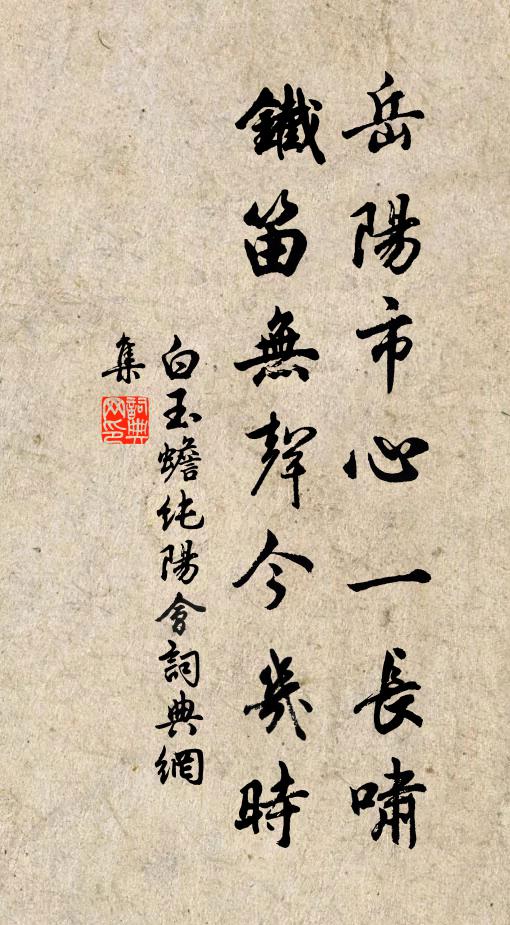 岳陽市心一長嘯
鐵笛無聲今幾時
白玉蟾純陽會詞典網
集
詞典網印